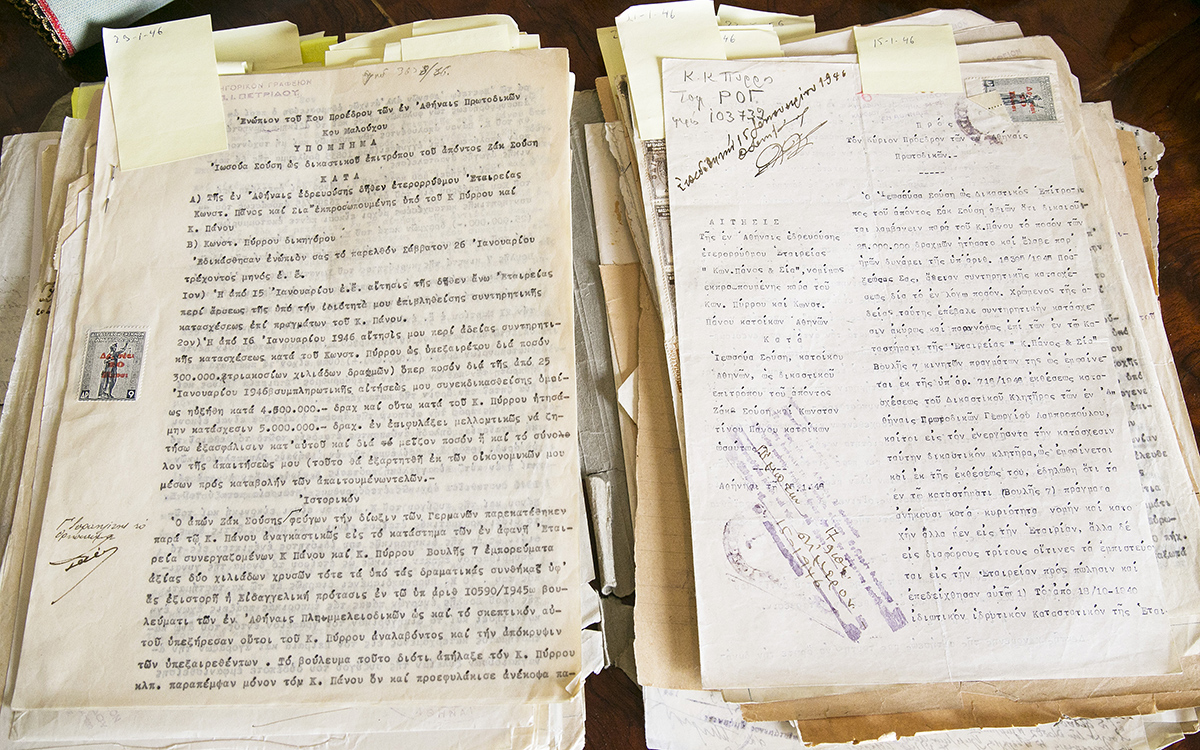 29-1-46
ΗΓΟΡΙΚΟΝ ΓΡΑΦΕΙΟΝ
Ι. ΠΕΤΡΙΔΟΥ
Ἐνώπιον τοῦ Κου Προέδρου τῶν ἐν Ἀθήναις Πρωτοδικῶν
Κου Μαλούχου
ΥΠΟΜΝΗΜΑ
Ἰωσούα Σούση ὡς δικαστικοῦ ἐπιτρόπου τοῦ ἀπόντος Ζάκ Σούση
ΚΑΤΑ
Α) Τῆς ἐν Ἀθήναις ἑδρευούσης δῆθεν ἑτερορρύθμου Ἑταιρείας
Κωνστ. Πάνος καί Σια ἐκπροσωπουμένης ὑπό τοῦ Κ Πύρρου καί
Κ. Πάνου
Β) Κωνστ. Πύρρου δικηγόρου
Ἐδικάσθησαν ἐνώπιόν σας τό παρελθόν Σάββατον 26 Ἰανουαρίου
τρέχοντος μηνός ἐ. ἔ.
Ιον) Ἡ ἀπό 15 Ἰανουαρίου ἐ.ἔ. αἴτησις τῆς δῆθεν ἄνω Ἑταιρείας
περί ἄρσεως τῆς ὑπό τήν ἰδιότητά μου ἐπιβληθείσης συντηρητικῆς
κατασχέσεως ἐπί πραγμάτων τοῦ Κ. Πάνου.
2ον) Ἡ ἀπό 16 Ἰανουαρίου 1946 αἴτησίς μου περί ἀδείας συντηρητι-
κῆς κατασχέσεως κατά τοῦ Κωνστ. Πύρρου ὡς ὑπεξαιρέτου διά ποσόν
300.000.(τριακοσίων χιλιάδων δραχμῶν) ὅπερ ποσόν διά τῆς ἀπό 25
Ἰανουαρίου 1946 συμπληρωτικῆς αἰτήσεώς μου συνεκδικασθείσης ὁμοί-
ως ηὐξήθη κατά 4.500.000.- δραχ καί οὕτω κατά τοῦ Κ. Πύρρου ᾐτησά-
μην κατάσχεσιν 5.000.000.- δραχ. ἐν ἐπιφυλάξει μελλοντικῶς νά ζη-
τήσω ἐξασφάλισιν κατ'αὐτοῦ καί διά τό μεῖζον ποσόν ἤ καί τό σύνο-
λον τῆς ἀπαιτήσεώς μου (τοῦτο θά ἐξαρτηθῇ ἐκ τῶν οἰκονομικῶν μου
μέσων πρός καταβολήν τῶν ἀπαιτουμένωντελῶν.-
Ἱστορικόν
Ὁ ἀπών Ζάκ Σούσης φεύγων τήν δίωξιν τῶν Γερμανῶν παρεκατέθηκεν
παρά τῷ Κ. Πάνου ἀναγκαστικῶς εἰς τό κατάστημα τῶν ἐν ἀφανῇ Ἑται-
ρείᾳ συνεργαζομένων Κ Πάνου καί Κ. Πύρρου Βουλῆς 7 ἐμπορεύματα
ἀξίας δύο χιλιάδων χρυσῶν τότε τά ὑπό τάς δραματικάς συνθήκας ὑφ'
ἅς ἐξιστορῇ ἡ Εἰσαγγελική πρότασις ἐν τῷ ὑπ ἀριθ 10590/1945 βου-
λεύματι τῶν ἐν Ἀθήναις Πλημμελειοδικῶν ὡς καί τό σκεπτικόν αὐ-
τοῦ ὑπεξῄρεσεν οὗτοι τοῦ Κ. Πύρρου ἀναλαβόντος καί τήν ἀπόκρυψιν
τῶν ὑπεξαιρεθέντων . Τό βούλευμα τοῦτο διότι ἀπήλαξε τόν Κ. Πύρρον
κλπ. παραπέμψαν μόνον τόν Κ. Πάνου ὅν καί προεφυλάκισε ἀνέκοψα πα-
15-1-46
Κ. Κ Πύρρο
ΡΟΓ
103739
15 Ἰανουαρίου 1946
ΑΙΤΗΣΙΣ
Τῆς ἐν Ἀθήναις ἑδρευούσης
ἑτερορρύθμου Ἑταιρείας
"Κων.Πάνος & Σία",νομίμως
ἐκπροσωπουμένης παρά τοῦ
Κων. Πύρρου καί Κωνστ.
Πάνου κατοίκων Ἀθηνῶν
Κατά
Ἰωσσούα Σούση, κατοίκου
Ἀθηνῶν, ὡς δικαστικοῦ
ἐπιτρόπου τοῦ ἀπόντος
Ζάκ Σούση καί Κωνσταν
τίνου Πάνου κατοίκων
ὡσαύτως
Πρός
Τόν Κύριον Πρόεδρον τῶν ἐν Ἀθήναις
Πρωτοδικῶν.-
Ὁ Ἰεσσούα Σούση ὡς Δικαστικός Ἐπίτρο-
πος τοῦ ἀπόντος Ζάκ Σούση ἀξιῶν ὅτι δικαιοῦ-
ται λαμβάνειν παρά τοῦ Κ.Πάνου τό ποσόν τῶν
25.000.000 δραχμῶν ᾐτήσατο καί ἔλαβε παρ'
ὑμῶν δυνάμει τῆς ὑπ'ἀριθ. Πρα-
ξεώσας Σας, ἄδειαν συντηρητικῆς κατασχέ-
σεως διά τό ἐν λόγῳ ποσόν. Χρώμενος τῆς ἀ-
δείας ταύτης ἐπέβαλε συντηρητικήν κατάσχε-
σιν ἀκύρως καί παρανόμως ἐπί τῶν ἐν τῷ Κα-
ταστήματι τῆς "Ἑταιρείας "Κ.Πάνος & Σία"
Βουλῆς 7 κινητῶν πραγμάτων της ὡς ἐμφαίνε-
ται ἐκ τῆς ὑπ'ἀρ. ἐκθέσεως κατα-
σχέσεως τοῦ Δικαστικοῦ Κλητῆρος τῶν ἐν Ἀ-
θήναις Πρωτοδικῶν Γεωργίου Λαμπροπούλου,
καίτοι εἰς τόν ἐνεργήσαντα τήν κατάσχεσιν
ταύτην δικαστικόν κλητῆρα,ὡς ἐμφαίνεται
καί ἐκ τῆς ἐκθέσεώς του, ἐδηλώθη ὅτι τά
ἐν τῷ καταστήματι (Βουλῆς 7) πράγματα
ἀνήκουσι κατά κυριότητα νομήν καί κατο-
χήν ἄλλα μεν εἰς τήν Ἑταιρίαν, ἄλλα δέ
εἰς διαφόρους τρίτους οἵτινες τά ἐμπιστεύον
ται εἰς τήν Ἑταιρείαν πρός πώλησιν καί
ἐπεδείχθησαν αὐτῷ 1) Τό ἀπό 18/10-1940
ἰδιωτικόν ἱδρυτικόν Καταστατικόν τῆς Ἑται-